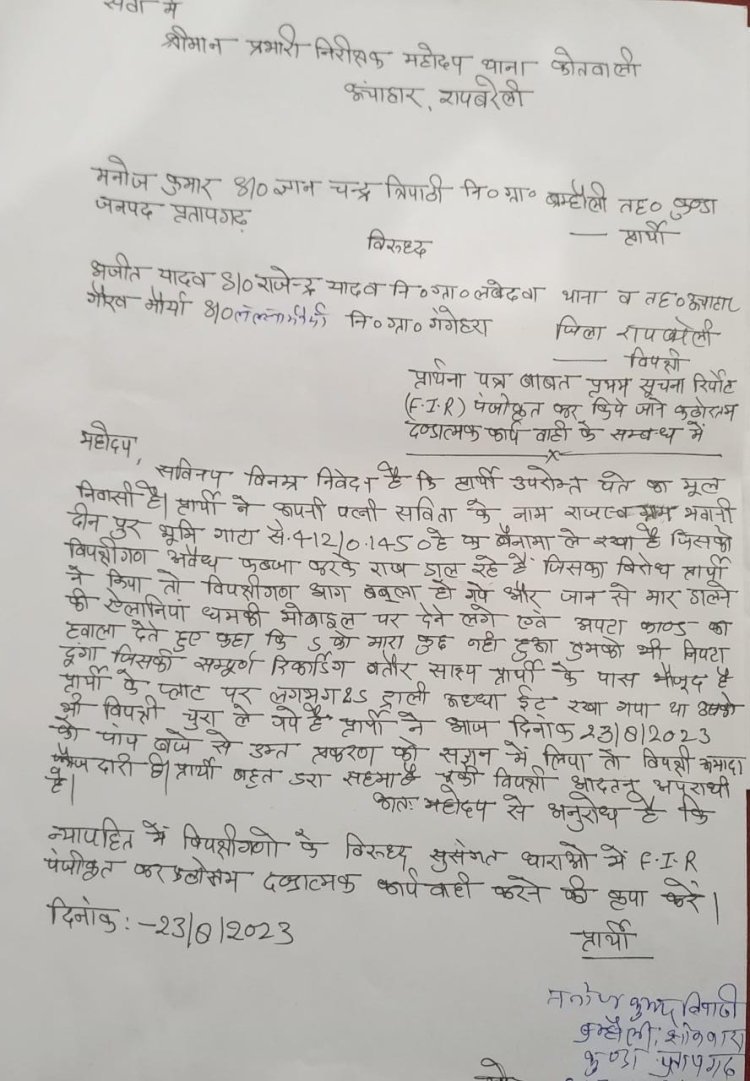 सेवा में
श्रीमान प्रभारी निरीक्षक महोदय थाना कोतवाली
ऊंचाहार, रायबरेली
मनोज कुमार S/0 ज्ञान चन्द्र त्रिपाठी नि० ग्रा० बम्हौली तह० कुण्डा
जनपद प्रतापगढ़
— प्रार्थी
विरूध्द
अजीत यादव S/0 राजेन्द्र यादव नि०ग्रा० लबेदवा थाना व तह० ऊंचाहार
गौरव मौर्या S/0 नि०ग्रा० गंगेहरा जिला रायबरेली
— विपक्षी
प्रार्थना पत्र बाबत प्रथम सूचना रिर्पोट
(F.I.R) पंजीकृत कर किये जाने कठोरतम
दण्डात्मक कार्यवाही के सम्बन्ध में
महोदय,
सविनय विनम्र निवेदन है कि प्रार्थी उपरोक्त पते का मूल
निवासी है। प्रार्थी ने अपनी पत्नी सविता के नाम राजस्व ग्राम भवानी
दीन पुर भूमि गाटा सं. 412/0.1450हे का बैनामा ले रखा है जिसको
विपक्षीगण अवैध कब्जा करके राख डाल रहे हैं जिसका विरोध प्रार्थी
ने किया तो विपक्षीगण आग बबूला हो गये और जान से मार डालने
की ऐलानिया धमकी मोबाइल पर देने लगे एवं अपटा काण्ड का
हवाला देते हुए कहा कि 5 को मारा कुछ नही हुआ तुमको भी निपटा
दूंगा जिसकी सम्पूर्ण रिकार्डिंग बतौर साक्ष्य प्रार्थी के पास मौजूद है
प्रार्थी के प्लाट पर लगभग 25 ट्राली अध्धा ईट रखा गया था उसको
भी विपक्षी चुरा ले गये है प्रार्थी ने आज दिनांक 23/8/2023
को पांच बजे से उक्त प्रकरण को सज्ञान में लिया तो विपक्षी अमादा
फौजदारी है। प्रार्थी बहुत डरा सहमा है चूकी विपक्षी आदतन अपराधी
है।
अतः महोदय से अनुरोध है कि
न्यायहित में विपक्षीगणो के विरूध्द सुसंगत धाराओ में F.I.R
पंजीकृत कर दण्डात्मक कार्यवाही करने की कृपा करें।
दिनांक: -23/8/2023
प्रार्थी
मनोज कुमार त्रिपाठी
बम्हौली,
कुण्डा प्रतापगढ़